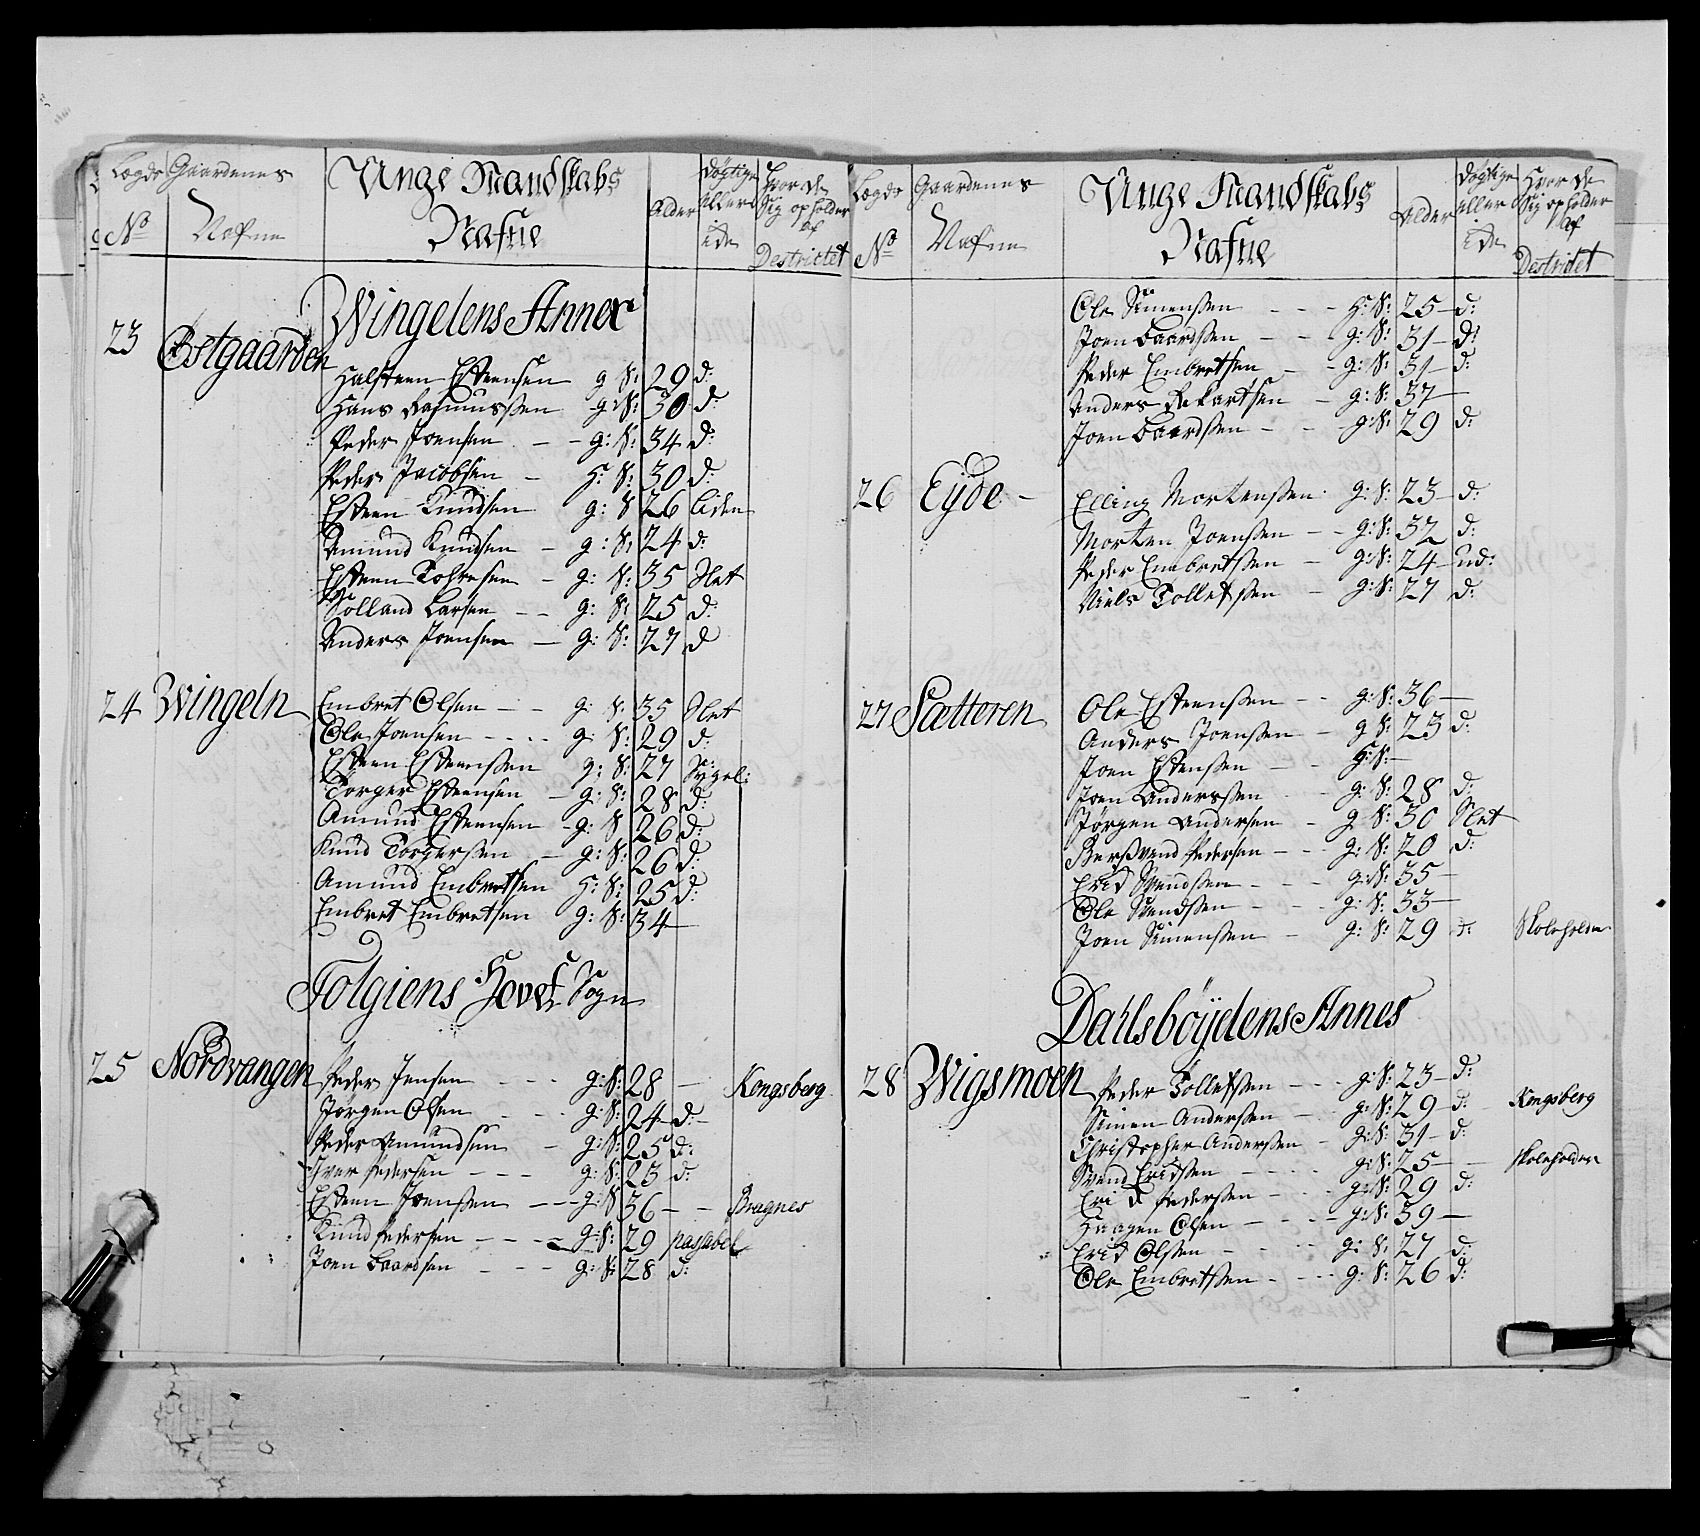 Lægds Gaardenes Unge Mandskabs Alder døgtige eller ide Hvor de Sig opholder af Destrictet
No Nafne Nafne
Wingelens Annex
23 Østgaarden
Halsteen Esteensen g: S: 29 d:
Hans Rasmussen g: S: 30 d:
Peder Joensen - - g: S: 34 d:
Peder Jacobsen - H: S: 30 d:
Esteen Knudsen g: S 26 liden
Amund Knudsen - g: S: 24 d:
Esteen Tohresen - g: S: 35 Slet
Holland Larsen - - g: S: 25 d:
Anders Joensen - g: S: 27 d
24 Wingeln
Embret Olsen - - g: S: 35 Slet
Ole Joensen - - - - g: S: 29 d:
Esteen Esteensen g: S: 27 Sygel:
Torger Esteensen - g: S: 28 d:
Amund Esteensen - g: S 26 d:
Knud Torgersen - g: S: 26 d:
Amund Embretsen H: S: 25 d:
Embret Embretsen g: S: 34 -
Tolgiens Hovet Sogn
25 Nordvangen
Peder Jensen - - - g: S: 28 - Kongsberg
Jørgen Olsen - - - g: S: 24 d: -
Peder Amundsen - g: S: 25 d:
Iver Pedersen - - - g: S: 23 d:
Esteen Joenssen - - - g: S 36 - - Bragnes
Knud Pedersen - - - g: S: 29 passabel
Joen Baardsen - - - g: S: 28 d:
Lægds Gaardenes Unge Mandskabs Alder døgtige eller ide Hvor de Sig opholder af Destrictet
No Nafne Nafne
Ole Simenssen - - - H: S: 25 - d:
Joen Baardssen - - g: S: 31 - d:
Peder Embretsen - - g: S: 31 - d:
Anders Rekartsen - g: S: 37 -
Joen Baardssen - - g: S: 29 d:
26 Eyde -
Elling Mortenssen g: S: 23 - d:
Morten Joenssen - - g: S: 32 d:
Peder Embretsen - g: S: 24 - ud:
Niels Tollefssen - g: S: 27 d:
27 Sætteren
Ole Esteenssen - - g: S: 36 -
Anders Joenssen - g S: 23 d:
Joen Estenssen - - g: S: -
Joen Anderssen - - g: S: 28 d:
Jørgen Andersen - g S: 30 Slet
Berssvend Pedersen - - g: S: 20 d:
Erich Svendssen - - - g: S: 35 -
Ole Svendssen - - - g: S: 33 -
Joen Simenssen - g: S: 29 d: Skoleholder
Dahlsbøydens Annex
28 Wigsmoen
Peder Tollefssen - - - g: S: 23 - d:
Simen Anderssen - - g: S: 29 d: Kongsberg
Christopher Anderssen - g: S: 31 - d:
Svend Erichssen - - - g: S: 25 - Skoleholder
Erich Pedersen - - - g: S: 29 d:
Haagen Olsen - - - g: S: 39 -
Erich Olssen - - - g: S: 27 d:
Ole Embretssen - - - g: S: 26 d: